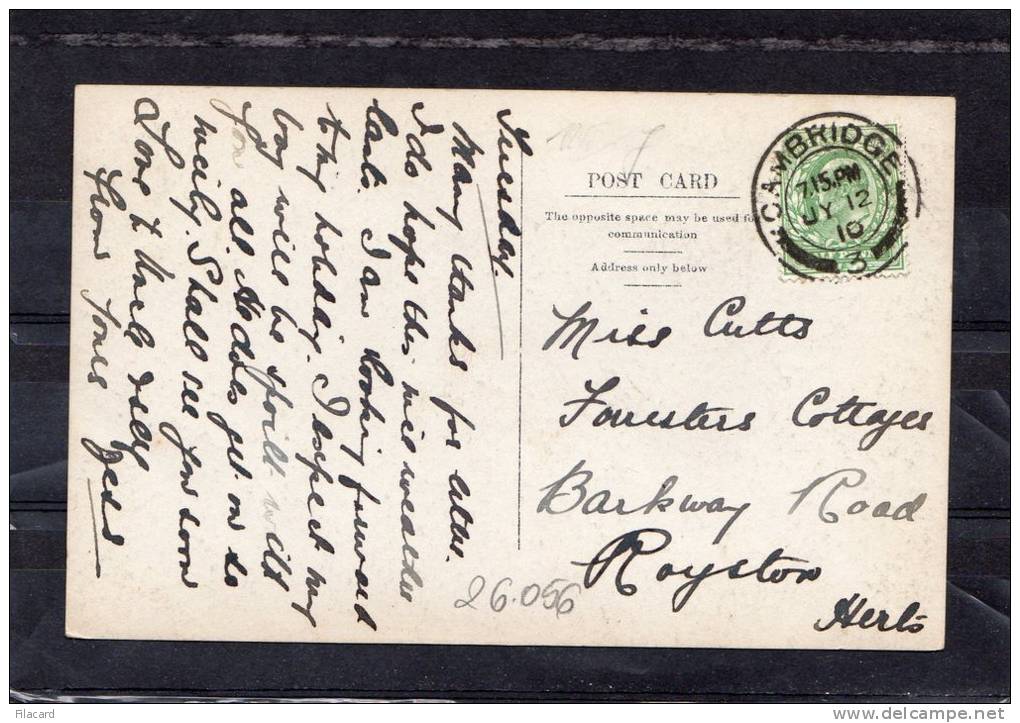 POST CARD
The opposite space may be used for
communication
Address only below
CAMBRIDGE
7.15.PM
JY 12
10
3
Miss Cutts
Forresters Cottages
Barkway Road
Royston
Herts
26.056
Tuesday.
Many thanks for letter.
I do hope this will weather
last. I am looking forward
to my holiday. I expect my
boy will be spoilt with
you all. He does get on so
well. Shall see you soon
Love to Uncle & self
from Yours
Filacard
http://www.delcampe.net